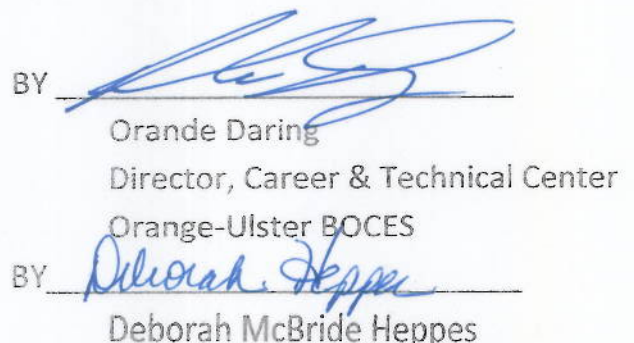 BY
Orande Daring
Director, Career & Technical Center
Orange-Ulster BOCES
BY Deborah Heppes
Deborah McBride Heppes